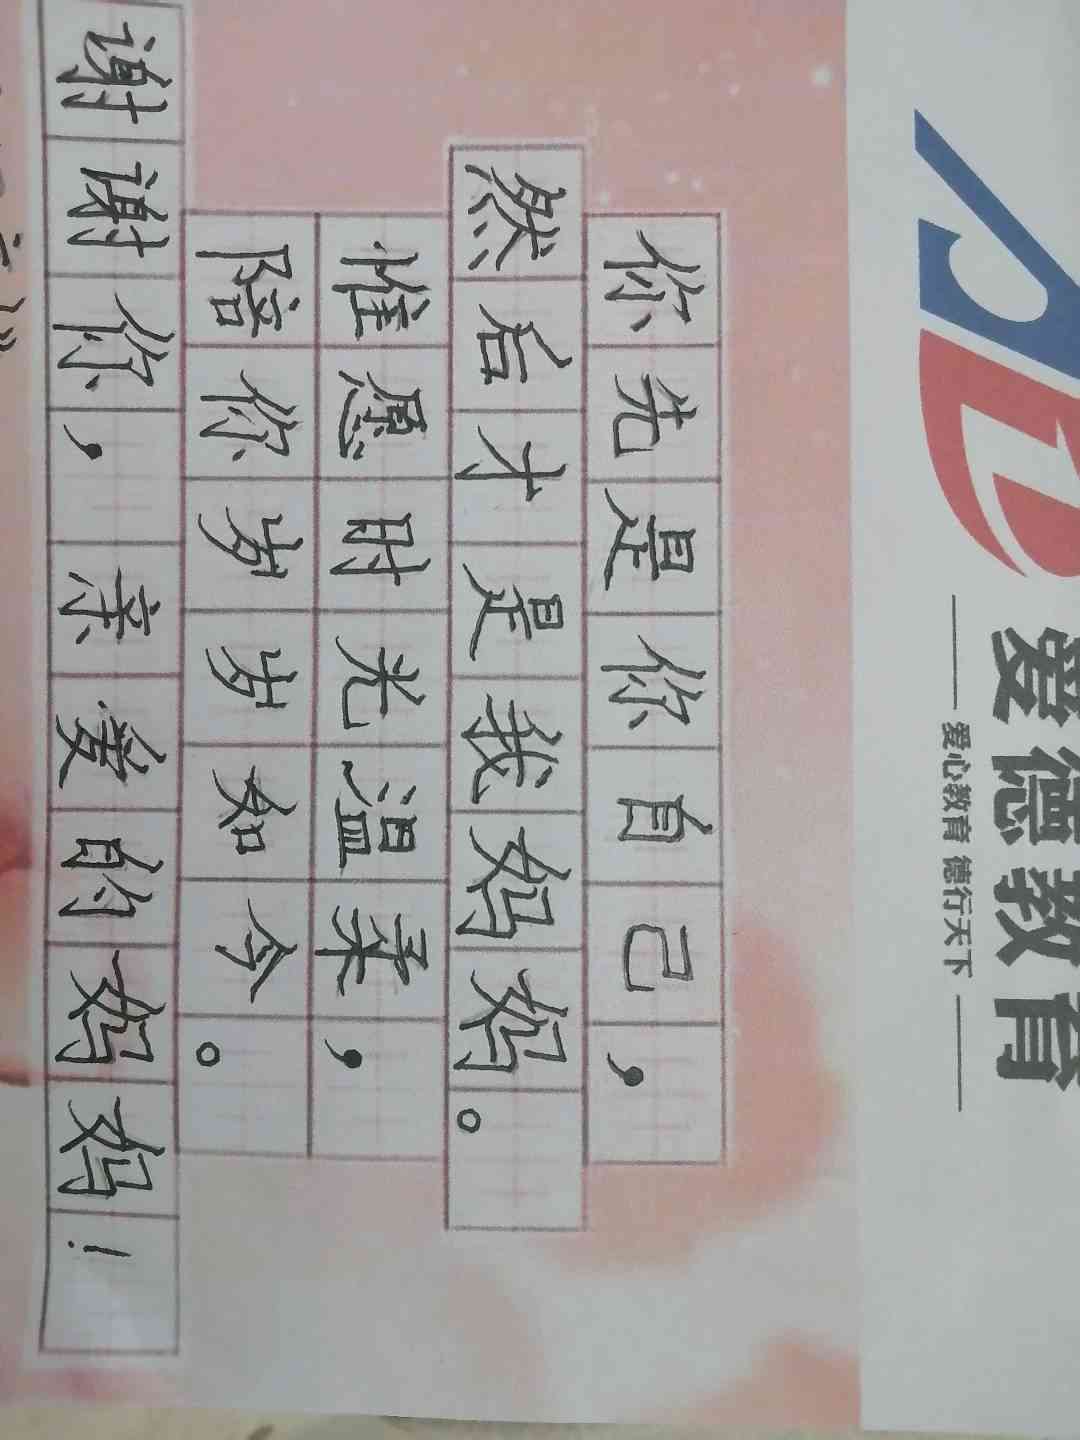 爱德教育
爱心教育 德行天下
你先是你自己，
然后才是我妈妈。
惟愿时光温柔，
陪你岁岁如今。
谢谢你，亲爱的妈妈！